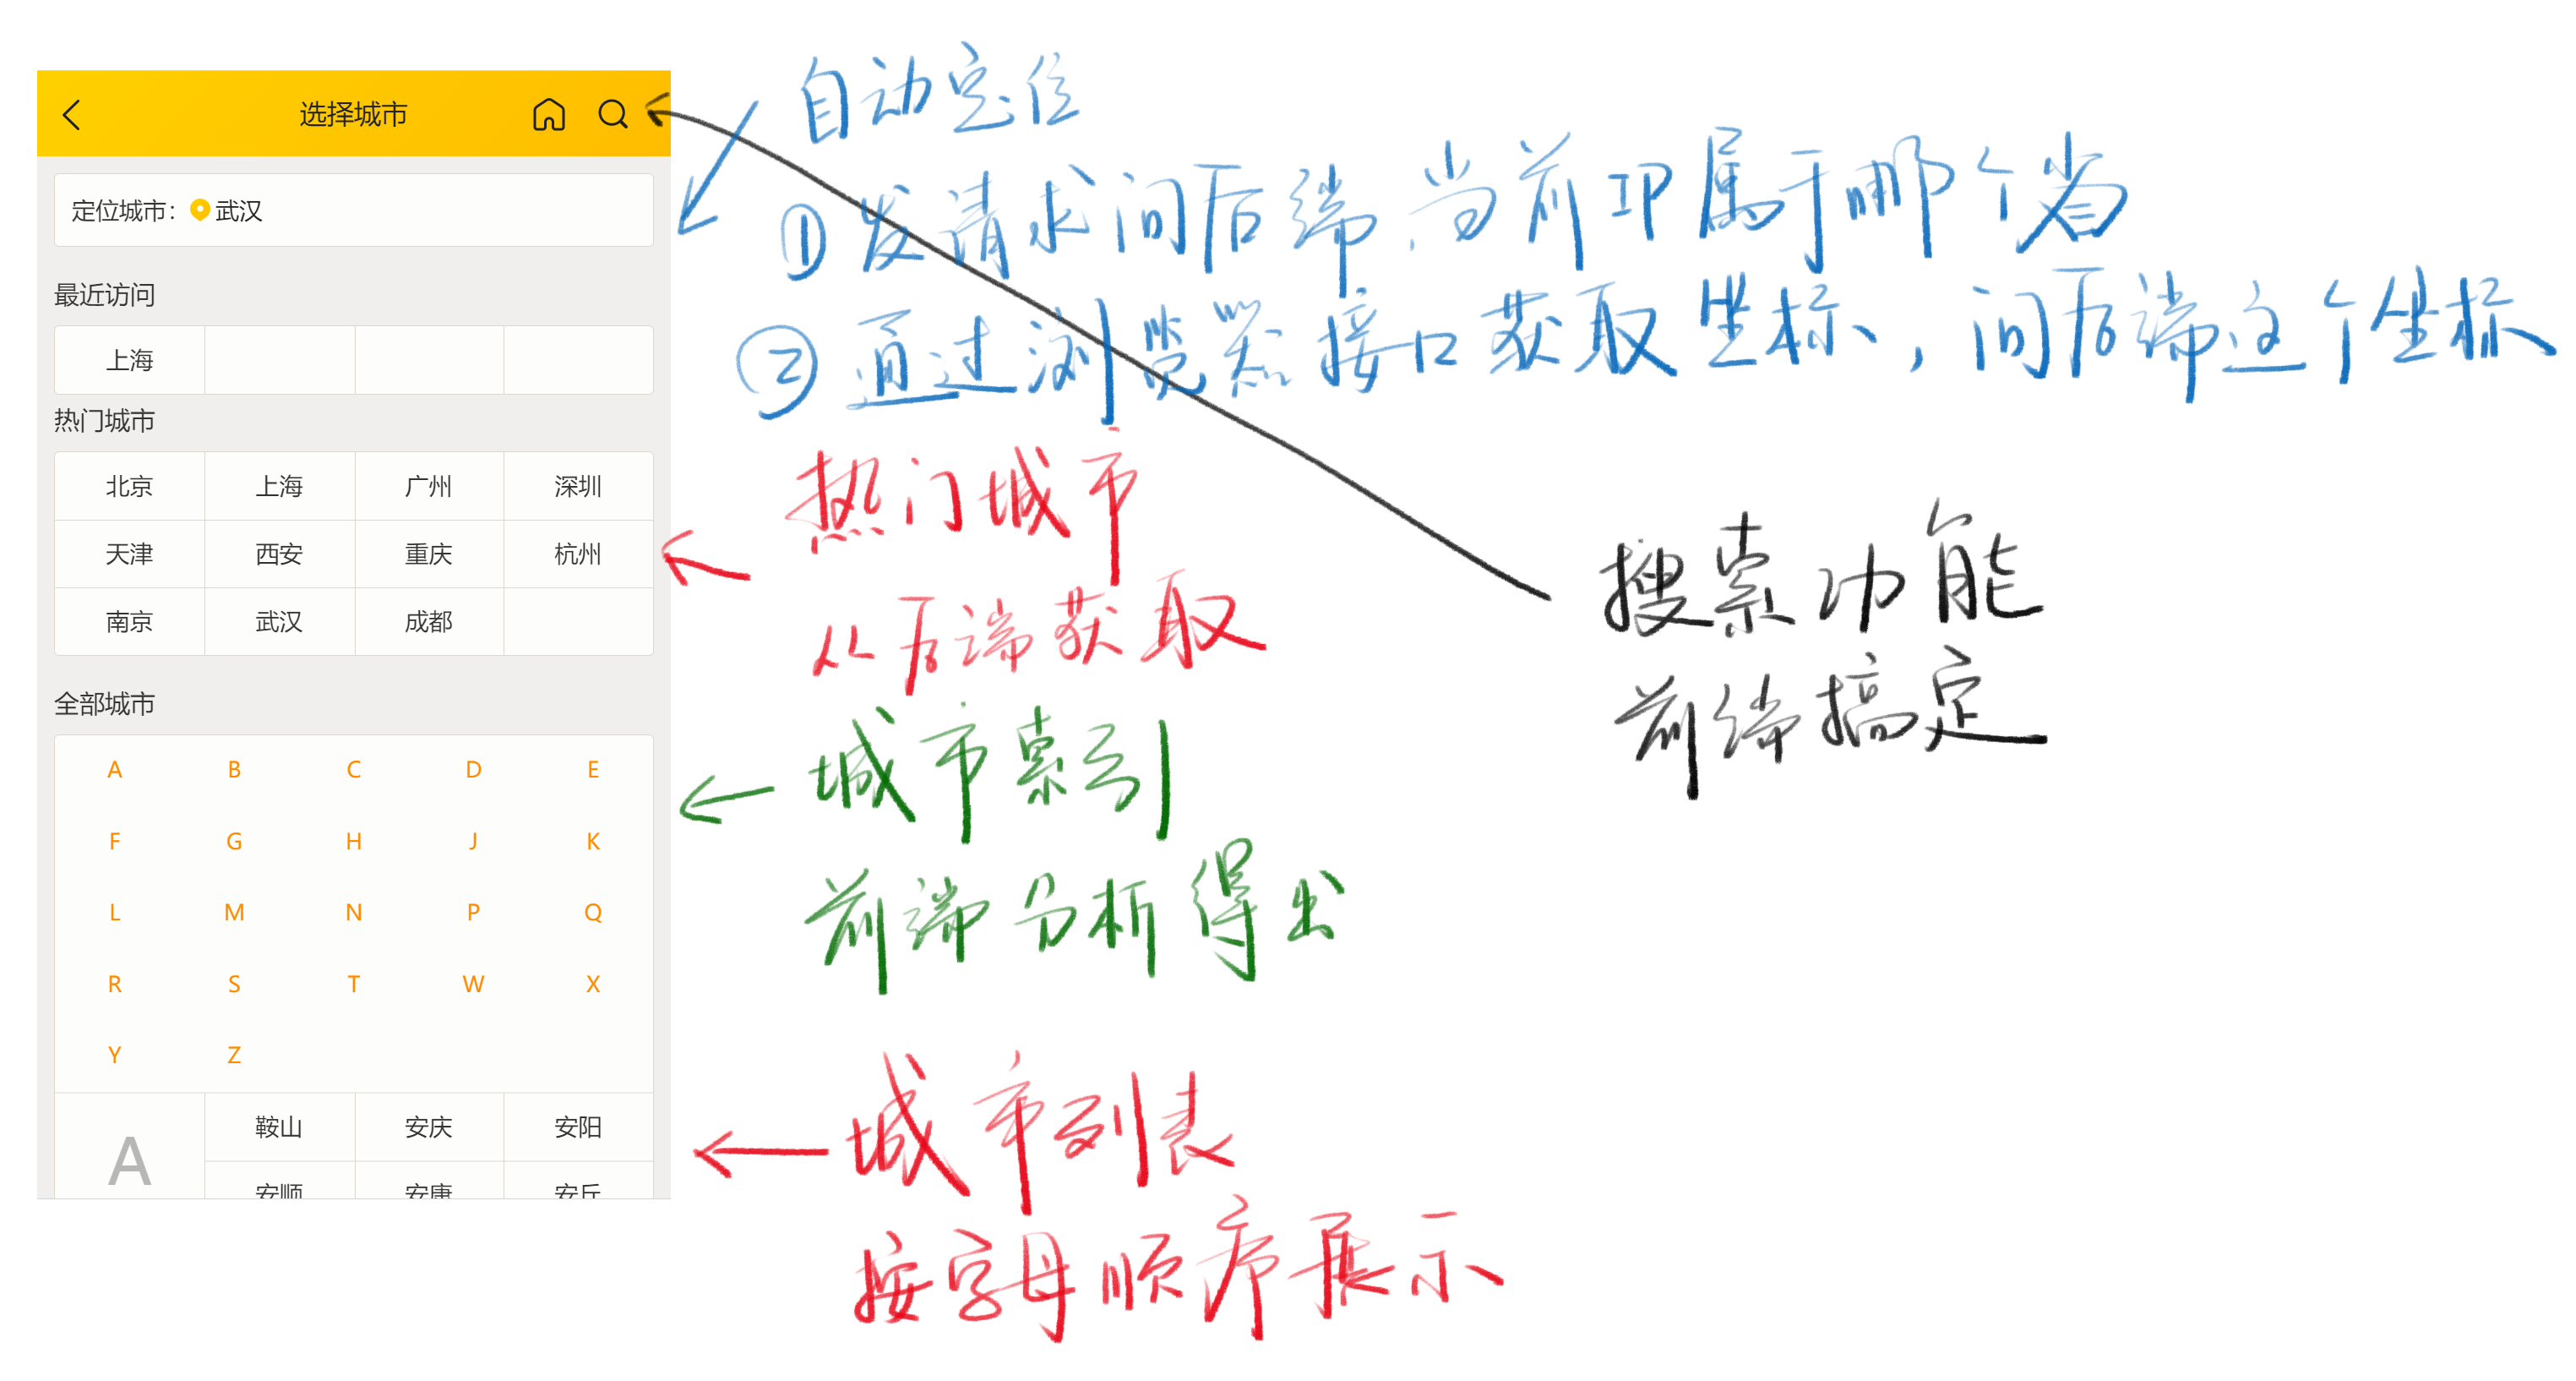 选择城市
定位城市： 武汉
最近访问
上海
热门城市
北京 上海 广州 深圳
天津 西安 重庆 杭州
南京 武汉 成都
全部城市
A B C D E
F G H J K
L M N P Q
R S T W X
Y Z
A
鞍山 安庆 安阳
安顺 安康 安丘
自动定位
① 发请求问后端当前IP属于哪个省
② 通过浏览器接口获取坐标，问后端这个坐标
热门城市
从后端获取
搜索功能
前端搞定
城市索引
前端分析得出
城市列表
按字母顺序展示